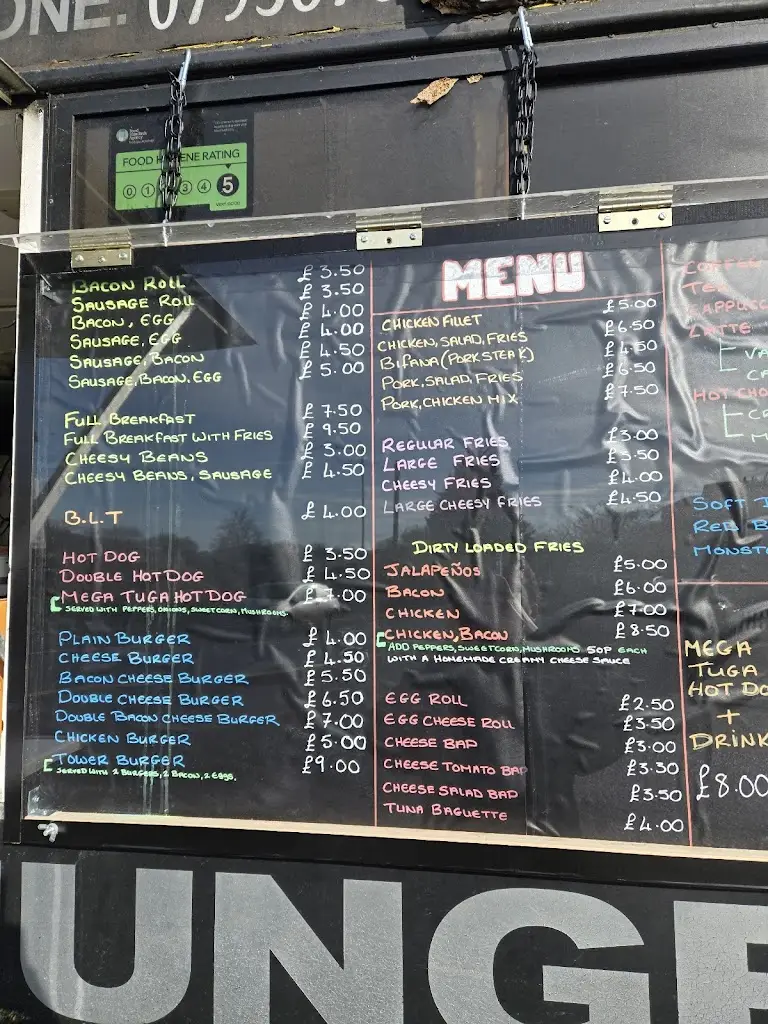 ONE:
FOOD HYGIENE RATING
0 1 3 4 5
VERY GOOD
BACON ROLL £ 3.50
SAUSAGE ROLL £ 3.50
BACON, EGG £ 4.00
SAUSAGE, EGG £ 4.00
SAUSAGE, BACON £ 4.50
SAUSAGE, BACON. EGG £ 5.00
FULL BREAKFAST £ 7.50
FULL BREAKFAST WITH FRIES £ 9.50
CHEESY BEANS £ 3.00
CHEESY BEANS, SAUSAGE £ 4.50
B.L.T £ 4.00
HOT DOG £ 3.50
DOUBLE HOT DOG £ 4.50
MEGA TUGA HOT DOG £7.00
SERVED WITH PEPPERS, ONIONS, SWEETCORN, MUSHROOMS.
PLAIN BURGER £4.00
CHEESE BURGER £4.50
BACON CHEESE BURGER £5.50
DOUBLE CHEESE BURGER £6.50
DOUBLE BACON CHEESE BURGER £7.00
CHICKEN BURGER £5.00
TOWER BURGER £9.00
SERVED WITH 2 BURGERS, 2 BACON, 2 EGGS.
MENU
CHICKEN FILLET £5.00
CHICKEN, SALAD, FRIES £6.50
BIFANA (PORK STEAK) £4.50
PORK, SALAD, FRIES £6.50
PORK, CHICKEN MIX £7.50
REGULAR FRIES £3.00
LARGE FRIES £3.50
CHEESY FRIES £4.00
LARGE CHEESY FRIES £4.50
DIRTY LOADED FRIES
JALAPEÑOS £5.00
BACON £6.00
CHICKEN £7.00
CHICKEN, BACON £8.50
ADD PEPPERS, SWEETCORN, MUSHROOMS 50P EACH
WITH A HOMEMADE CREAMY CHEESE SAUCE
EGG ROLL £2.50
EGG CHEESE ROLL £3.50
CHEESE BAP £3.00
CHEESE TOMATO BAP £3.30
CHEESE SALAD BAP £3.50
TUNA BAGUETTE £4.00
COFFEE
TEA
CAPPUCC
LATTE
VA
CA
HOT CHO
CR
M
SOFT D
RED B
MONST
MEGA
TUGA
HOT DO
+
DRINK
£8.00
UNGE